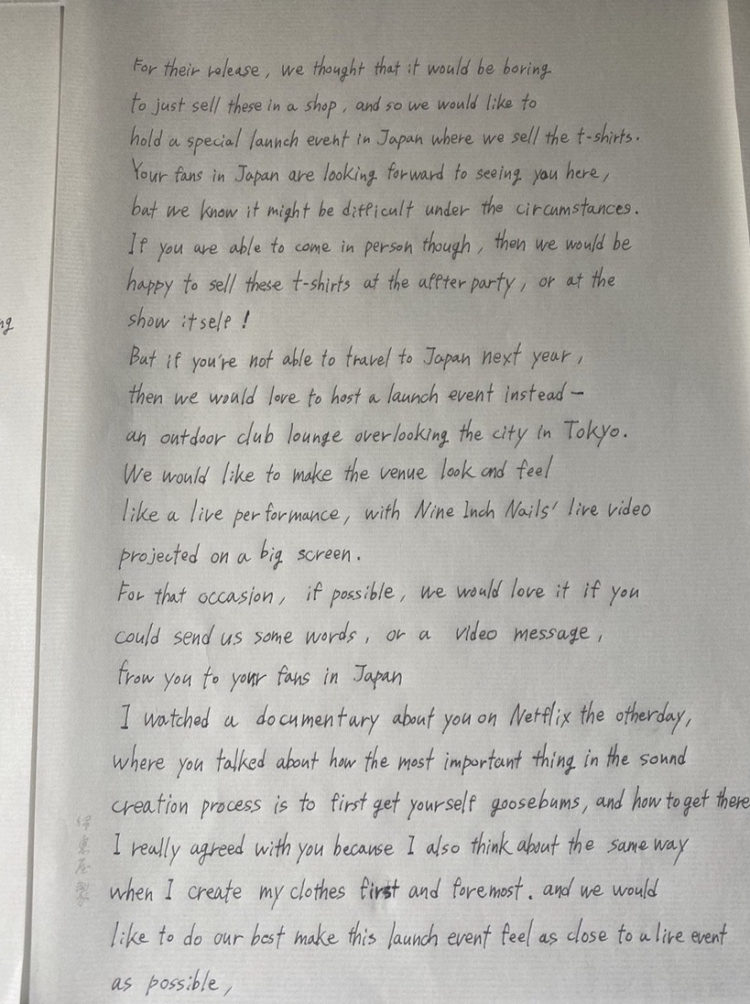 For their release, we thought that it would be boring
to just sell these in a shop, and so we would like to
hold a special launch event in Japan where we sell the t-shirts.
Your fans in Japan are looking forward to seeing you here,
but we know it might be difficult under the circumstances.
If you are able to come in person though, then we would be
happy to sell these t-shirts at the affter party, or at the
show itself!
But if you're not able to travel to Japan next year,
then we would love to host a launch event instead—
an outdoor club lounge overlooking the city in Tokyo.
We would like to make the venue look and feel
like a live performance, with Nine Inch Nails' live video
projected on a big screen.
For that occasion, if possible, we would love it if you
could send us some words, or a video message,
frow you to your fans in Japan
I watched a documentary about you on Netflix the otherday,
where you talked about how the most important thing in the sound
creation process is to first get yourself goosebums, and how to get there
I really agreed with you because I also think about the same way
when I create my clothes first and foremost. and we would
like to do our best make this launch event feel as close to a live event
as possible,